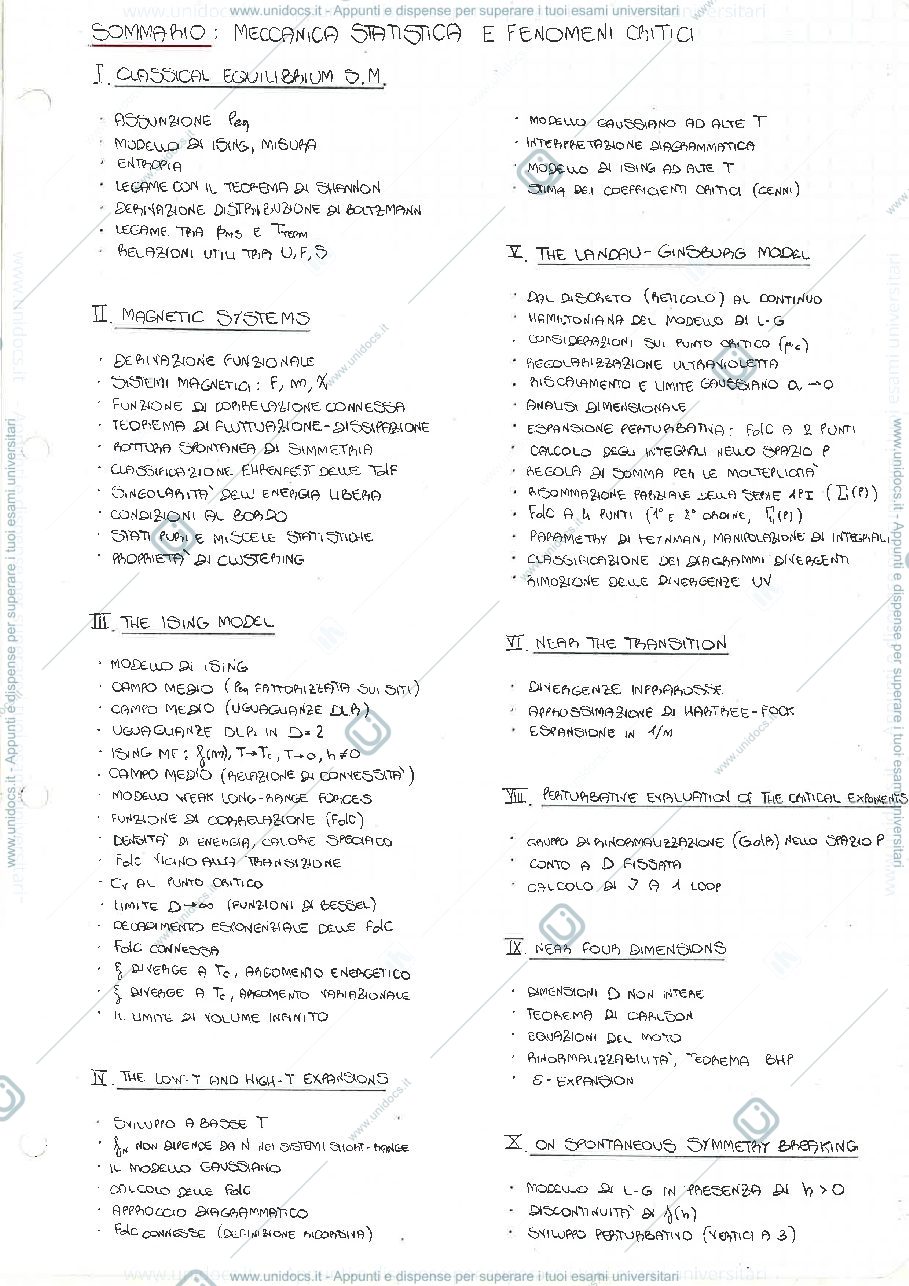 www.unidocs.it - Appunti e dispense per superare i tuoi esami universitari
SOMMARIO: MECCANICA STATISTICA E FENOMENI CRITICI
I. CLASSICAL EQUILIBRIUM S.M.
· ASSUNZIONE Peq
· MODELLO DI ISING, MISURA
· ENTROPIA
· LEGAME CON IL TEOREMA DI SHANNON
· DERIVAZIONE DISTRIBUZIONE DI BOLTZMANN
· LEGAME TRA βMS E TTERM
· RELAZIONI UTILI TRA U, F, S
II. MAGNETIC SYSTEMS
· DERIVAZIONE FUNZIONALE
· SISTEMI MAGNETICI: F, m, χ
· FUNZIONE DI CORRELAZIONE CONNESSA
· TEOREMA DI FLUTTUAZIONE-DISSIPAZIONE
· ROTTURA SPONTANEA DI SIMMETRIA
· CLASSIFICAZIONE EHRENFEST DELLE TdF
· SINGOLARITA' DELL'ENERGIA LIBERA
· CONDIZIONI AL BORDO
· STATI PURI E MISCELE STATISTICHE
· PROPRIETA' DI CLUSTERING
III. THE ISING MODEL
· MODELLO DI ISING
· CAMPO MEDIO (Peq FATTORIZZATA SUI SITI)
· CAMPO MEDIO (UGUAGLIANZE DLR)
· UGUAGLIANZE DLR IN D=2
· ISING MF: f(m), T→Tc, T→0, h≠0
· CAMPO MEDIO (RELAZIONE DI CONVESSITA')
· MODELLO WEAK LONG-RANGE FORCES
· FUNZIONE DI CORRELAZIONE (FdC)
· DENSITA' DI ENERGIA, CALORE SPECIFICO
· FdC VICINO ALLA TRANSIZIONE
· CV AL PUNTO CRITICO
· LIMITE D→∞ (FUNZIONI DI BESSEL)
· DECADIMENTO ESPONENZIALE DELLE FdC
· FdC CONNESSA
· ξ DIVERGE A Tc, ARGOMENTO ENERGETICO
· ξ DIVERGE A Tc, ARGOMENTO VARIAZIONALE
· IL LIMITE DI VOLUME INFINITO
IV. THE LOW-T AND HIGH-T EXPANSIONS
· SVILUPPO A BASSE T
· fN NON DIPENDE DA N NEI SISTEMI SHORT-RANGE
· IL MODELLO GAUSSIANO
· CALCOLO DELLE FdC
· APPROCCIO DIAGRAMMATICO
· FdC CONNESSE (DEFINIZIONE RICORSIVA)
· MODELLO GAUSSIANO AD ALTE T
· INTERPRETAZIONE DIAGRAMMATICA
· MODELLO DI ISING AD ALTE T
· STIMA DEI COEFFICIENTI CRITICI (CENNI)
V. THE LANDAU-GINSBURG MODEL
· DAL DISCRETO (RETICOLO) AL CONTINUO
· HAMILTONIANA DEL MODELLO DI L-G
· CONSIDERAZIONI SUL PUNTO CRITICO (μc)
· REGOLARIZZAZIONE ULTRAVIOLETTA
· RISCALAMENTO E LIMITE GAUSSIANO a→0
· ANALISI DIMENSIONALE
· ESPANSIONE PERTURBATIVA: FdC A 2 PUNTI
· CALCOLO DEGLI INTEGRALI NELLO SPAZIO P
· REGOLA DI SOMMA PER LE MOLTEPLICITA'
· RISOMMAZIONE PARZIALE DELLA SERIE 1PI (Σ(P))
· FdC A 4 PUNTI (1° E 2° ORDINE, Γ4(P))
· PARAMETRY DI FEYNMAN, MANIPOLAZIONE DI INTEGRALI
· CLASSIFICAZIONE DEI DIAGRAMMI DIVERGENTI
· RIMOZIONE DELLE DIVERGENZE UV
VI. NEAR THE TRANSITION
· DIVERGENZE INFRAROSSE
· APPROSSIMAZIONE DI HARTREE-FOCK
· ESPANSIONE IN 1/M
VIII. PERTURBATIVE EVALUATION OF THE CRITICAL EXPONENTS
· GRUPPO DI RINORMALIZZAZIONE (GdR) NELLO SPAZIO P
· CONTO A D FISSATA
· CALCOLO DI ν A 1 LOOP
IX. NEAR FOUR DIMENSIONS
· DIMENSIONI D NON INTERE
· TEOREMA DI CARLSON
· EQUAZIONI DEL MOTO
· RINORMALIZZABILITA', TEOREMA BHP
· ε-EXPANSION
X. ON SPONTANEOUS SYMMETRY BREAKING
· MODELLO DI L-G IN PRESENZA DI h>0
· DISCONTINUITA' DI f(h)
· SVILUPPO PERTURBATIVO (VERTICI A 3)
www.unidocs.it - Appunti e dispense per superare i tuoi esami universitari